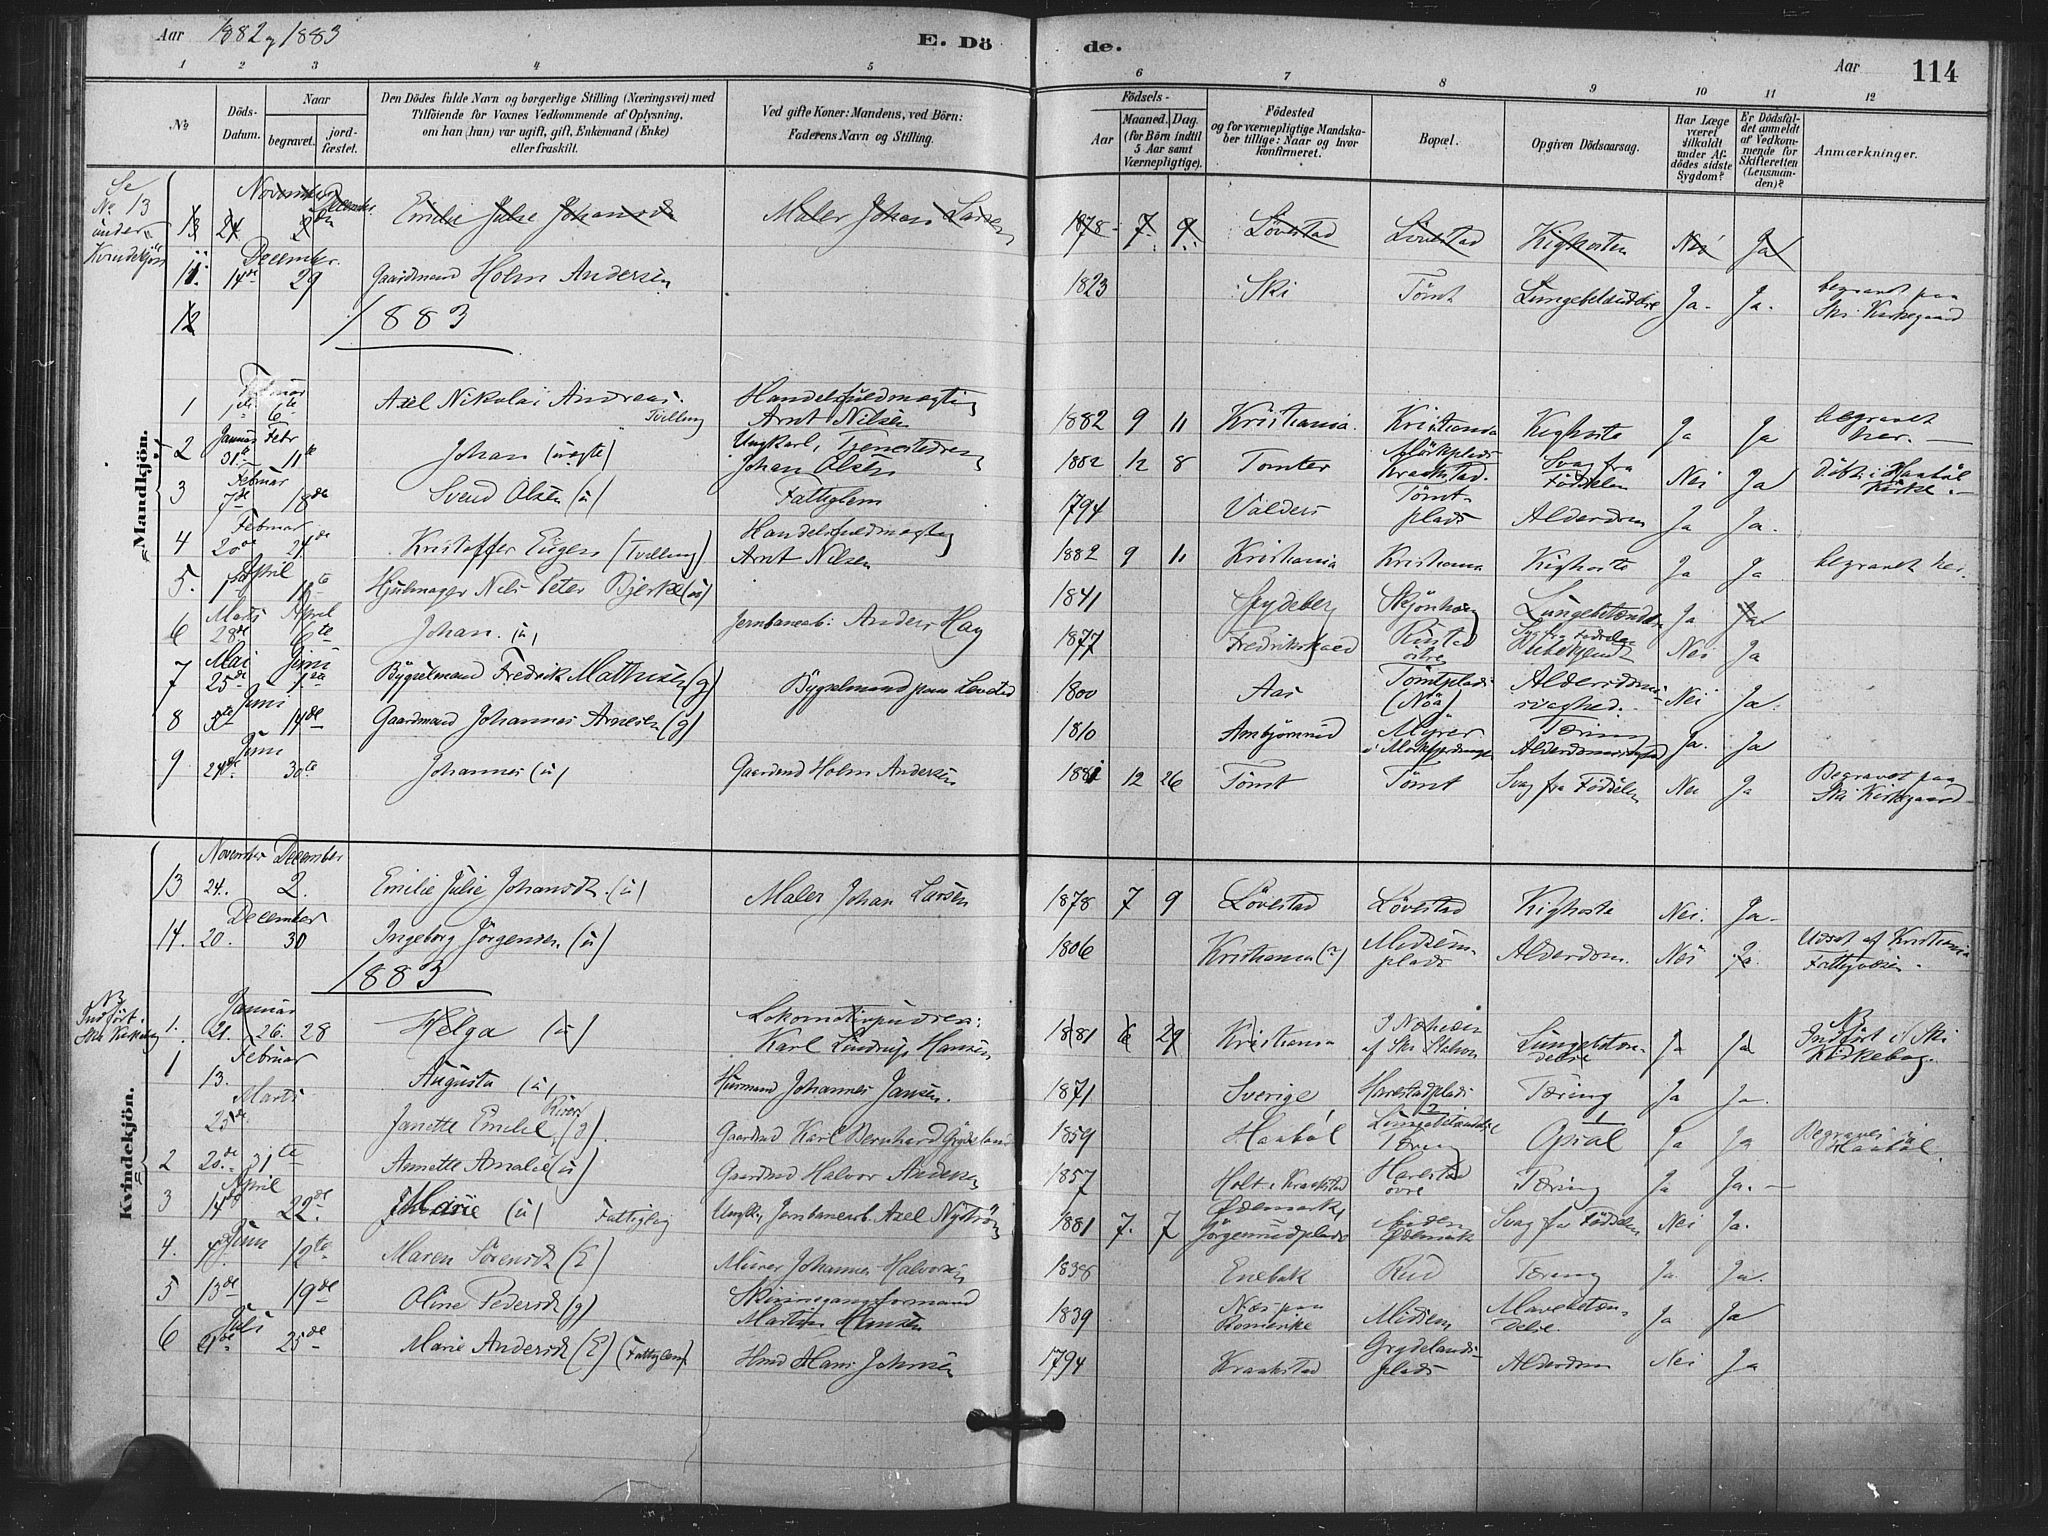 Aar 1882 og 1883
E. Dö
de.
Aar
114
1 2 3 4 5 6 7 8 9 10 11 12
No
Döds-Datum.
Naar
begravet.
jord-fæstet.
Den Dödes fulde Navn og borgerlige Stilling (Næringsvei) med
Tilföiende for Voxnes Vedkommende af Oplysning,
om han (hun) var ugift, gift, Enkemand (Enke)
eller fraskilt.
Ved gifte Koner: Mandens, ved Börn:
Faderens Navn og Stilling.
Födsels-
Aar
Maaned.
Dag.
(for Börn indtil
5 Aar samt
Værnepligtige).
Födested
og for værnepligtige Mandska-
ber tillige: Naar og hvor
konfirmeret.
Bopæl.
Opgiven Dödsaarsag.
Har Læge
været
tilkaldt
under Af-
dödes sidste
Sygdom?
Er Dödsfal-
det anmeldt
af Vedkom-
mende for
Skifteretten
(Lensman-
den)?
Anmærkninger.
Se No 13 under Kvindekjön
„Mandkjön.“
November December
13 24 2 Emilie Julie Johansdt Maler Johan Larsen 1878 7 9 Lövestad Lövestad Kighosten Nei Ja
December
11 14de 29 Gaardmand Holm Andersen 1823 Ski Tömt Lungebetændelse Ja. Ja. begravet paa Ski Kirkegaard
12 1883
Februar
1 1ste 6te Axel Nikolai Andreas. Tvilling Handelsfuldmægtig Arnt Nilsen 1882 9 11 Kristiania. Kristiania Kighoste Ja Ja begravet her.
Januar Febr
2 31te 11te Johan (uægte) Ungkarl, Johan Olsen 1882 12 8 Tomter Mörkplads Kraakstad. Svag fra Födselen Nei Ja döbt i Haaböl Kirke.
Februar
3 7de 18de Svend Olsen (u) Fattiglem 1794 Valders Tömt-plads Alderdom Ja Ja.
Februar
4 20de 24de Kristoffer Eugen (Tvilling) Handelsfuldmægtig Arnt Nilsen 1882 9 11 Kristiania Kristiania Kighoste Ja Ja begravet her.
April
5. Hjulmager Nils Peter Bjerke (u) 1841 Spydeberg Skjönhaug Lungebetændelse Ja Ja
Marts April
6 28de 6te Johan. (u) Jernbanearb. Anders Hay 1877 Fredrikshald Rustad övre Syg fra Födselen Ubekjendt Nei Ja
Mai Juni
7 25de 1ste Bygselmand Fredrik Mathisen (g) Bygselmand paa 1800 Aas Tömtplads (Nöa) Alderdoms-svaghed. Nei Ja.
Juni
8 5te 14de Gaardmand Johannes Arnesen (g) 1810 Arnbjörnrud Myrer Tæring Alderdomssvaghed Ja. Ja
Juni
9 24de 30te Johannes (u) Gaardmd Holm Andersen 1881 12 26 Tömt Tömt Svag fra Födselen Nei Ja Begravet paa Ski Kirkegaard
Kvindekjön.
November December
13 24. 2. Emilie Julie Johansdt. (u) Maler Johan Larsen 1878 7 9 Lövestad Lövestad Kighoste Nei. Ja.
December
14. 20. 30 Ingeborg Jörgensen (u) 1806 Kristiania (?) Midsem plads Alderdom. Nei Ja. Udsat af Kristiania Fattigvæsen.
1883
NB Indfört i Ski Kirkebog
Januar
1. 21. 26. 28 Helga (u) Karl Lindrup Hansen 1881 6 29 Kristiania I Nærheden af Ski Station Lungebetæn-delse Ja Ja NB Indfört i Ski Kirkebog.
Februar
1 13. Augusta (u) Husmand Johannes Jansen. 1871 Sverige Harestadplads Tæring Ja Ja.
Marts
23de Janette Emilie (g) Gaardmd Karl Bernhard Grydeland 1859 Haaböl Lungebetændelse Tæring Opsal Ja Ja Begraves i Haaböl.
2 20de 31te Annette Amalie (u) Gaardmd Halvor Andersen 1857 Holt i Kraakstad Harestad övre Tæring Ja Ja.
April
3 14de 22de. Marie (u) Fattiglem Ungk., Jernbanearb. Axel Nyström 1881 7. 7 Ødemark, Jörgenrudplads Ødemark Svag fra Födselen Nei Ja.
Juni
4. 4de 12te Maren Sörensdt (E) Murer Johannes Halvorsen 1838 Enebak Rud Tæring Ja Ja.
5 13de 19de Oline Pedersdt (g) Skinnegangsformand Martin Hansen 1839 Næs paa Romerike Midsem Mavebetæn-delse. Ja Ja
Juli
6 25de Marie Andersdt (E) (Fattiglem) Hmd Hans Johnsen 1794 Kraakstad Grydelands-plads Alderdom Nei Ja